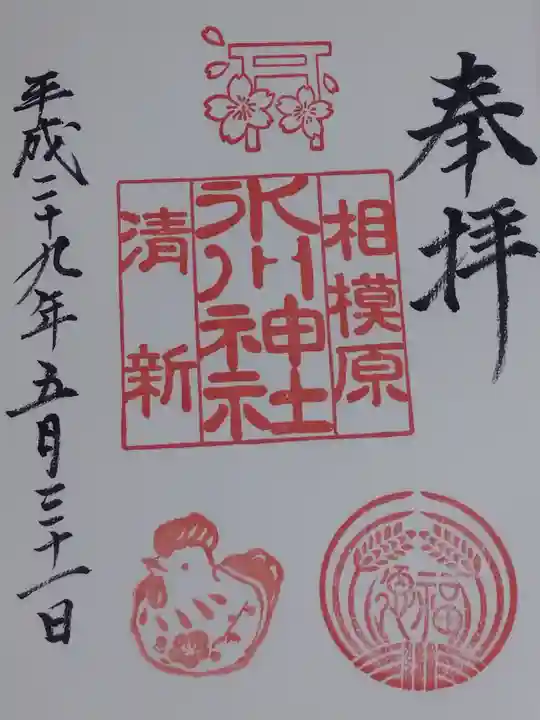 奉拝
相模原
氷川神社
清新
平成二十九年五月三十一日
福